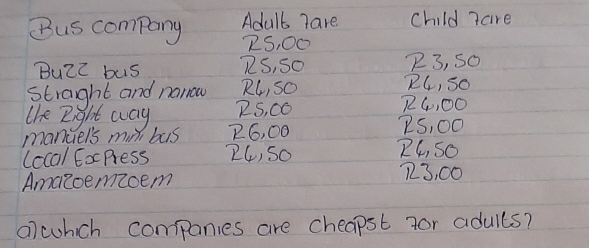 Bus company Adult fare Child fare
R5,00
Buzz bus R5,50 R3,50
Straight and narrow R4,50 R4,50
the Right way R5,00 R4,00
manuel's mini bus R6,00 R5,00
Local Express R4,50 R4,50
Amazoemzoem R3,00
a) which companies are cheapst for adults?